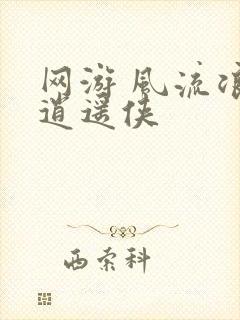 网游风流浪
逍遥侠
西索科